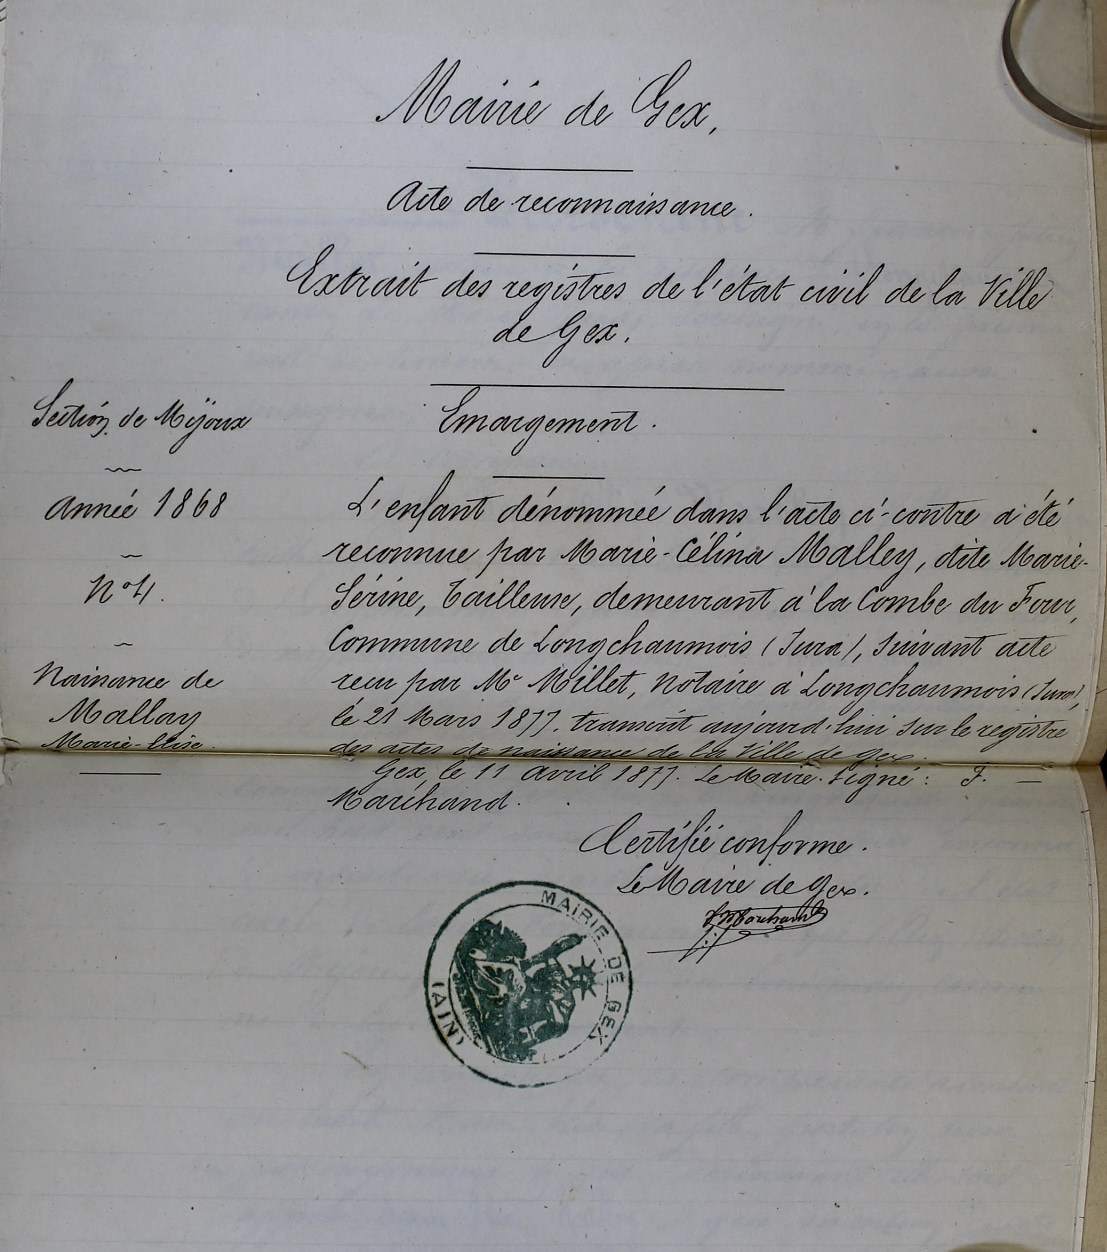 Mairie de Gex,
Acte de reconnaissance.
Extrait des registres de l'état civil de la Ville
de Gex.
Section de Mijoux
Année 1868
N° 4.
Naissance de
Mallay
Marie-Elise.
Emargement.
L'enfant dénommée dans l'acte ci-contre a été
reconnue par Marie-Célina Malley, dite Marie-
Sérine, Tailleuse, demeurant à la Combe du Four,
Commune de Longchaumois (Jura), suivant acte
recu par Me Millet, notaire à Longchaumois (Jura),
le 21 Mars 1877. transcrit aujourd'hui sur le registre
des actes de naissance de la Ville de Gex.
Gex, le 11 avril 1877. Le Maire. Signé: F. —
Marchand.
Certifié conforme.
Le Maire de Gex.
F Marchand
MAIRIE DE GEX
(AIN)